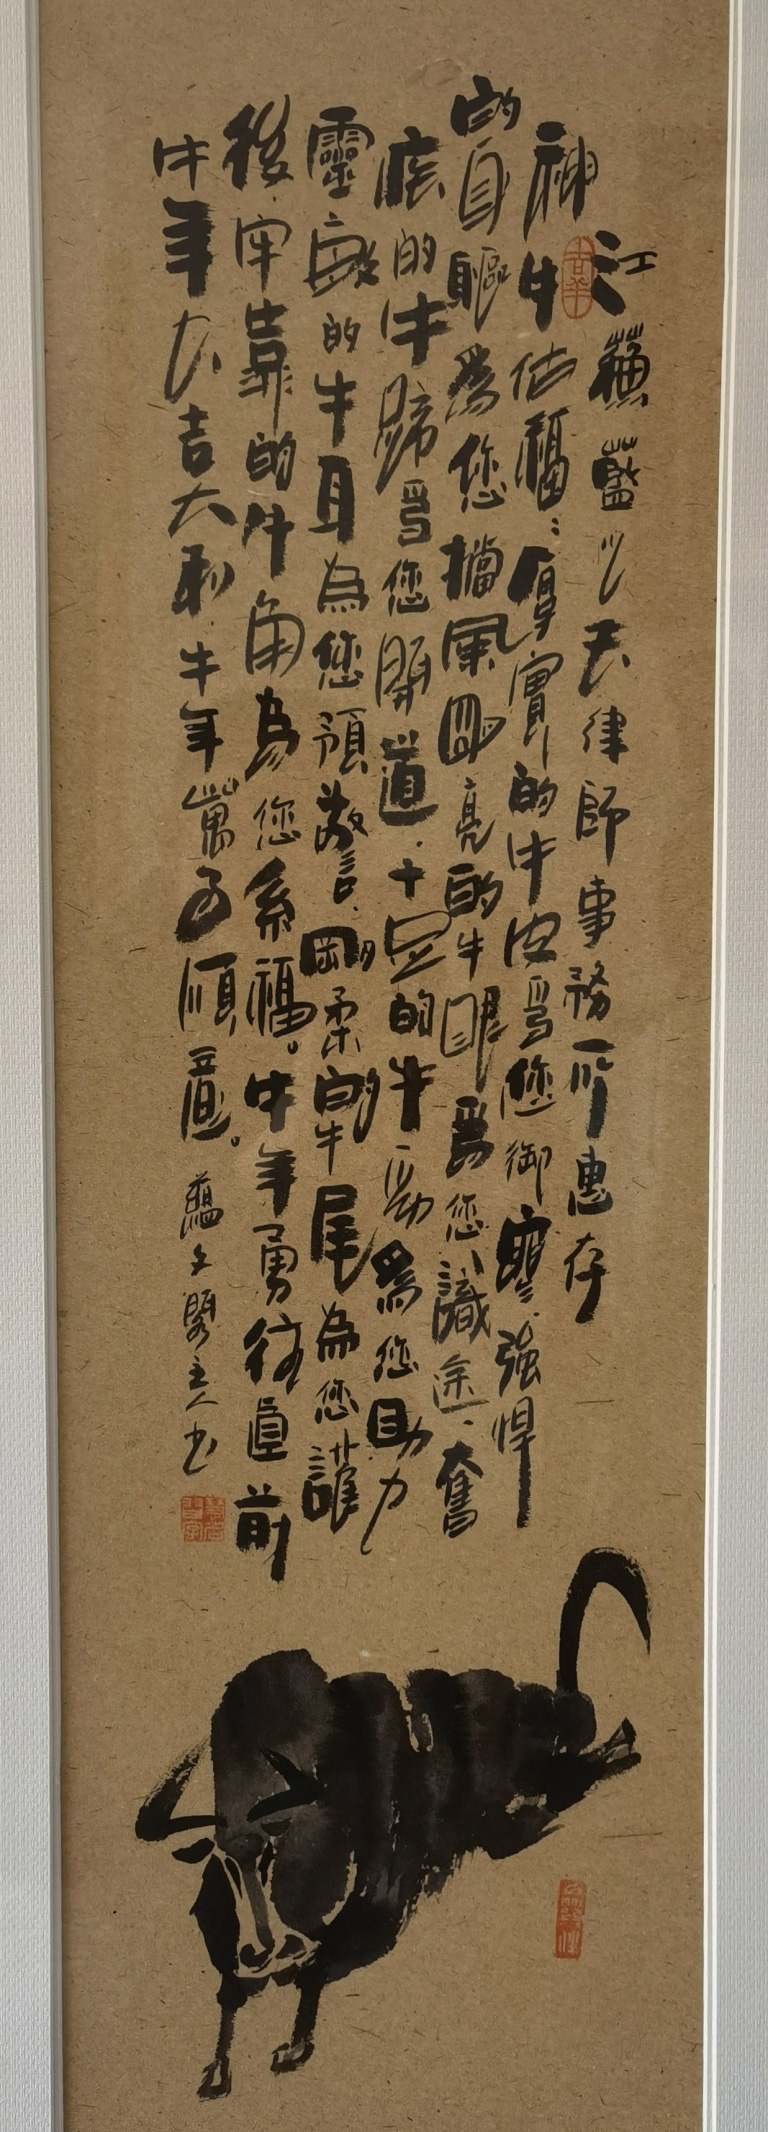 江蘇藍之天律師事務所惠存
神牛佑福：厚實的牛皮為您御寒強悍
的身軀為您擋風明亮的牛眼為您識途奮
疾的牛蹄為您開道十足的牛勁為您助力
靈敏的牛耳為您預警剛柔的牛尾為您護
後牢靠的牛角為您系福。牛年勇往直前
牛年大吉大利牛年萬事順意。蘊文閣主人書